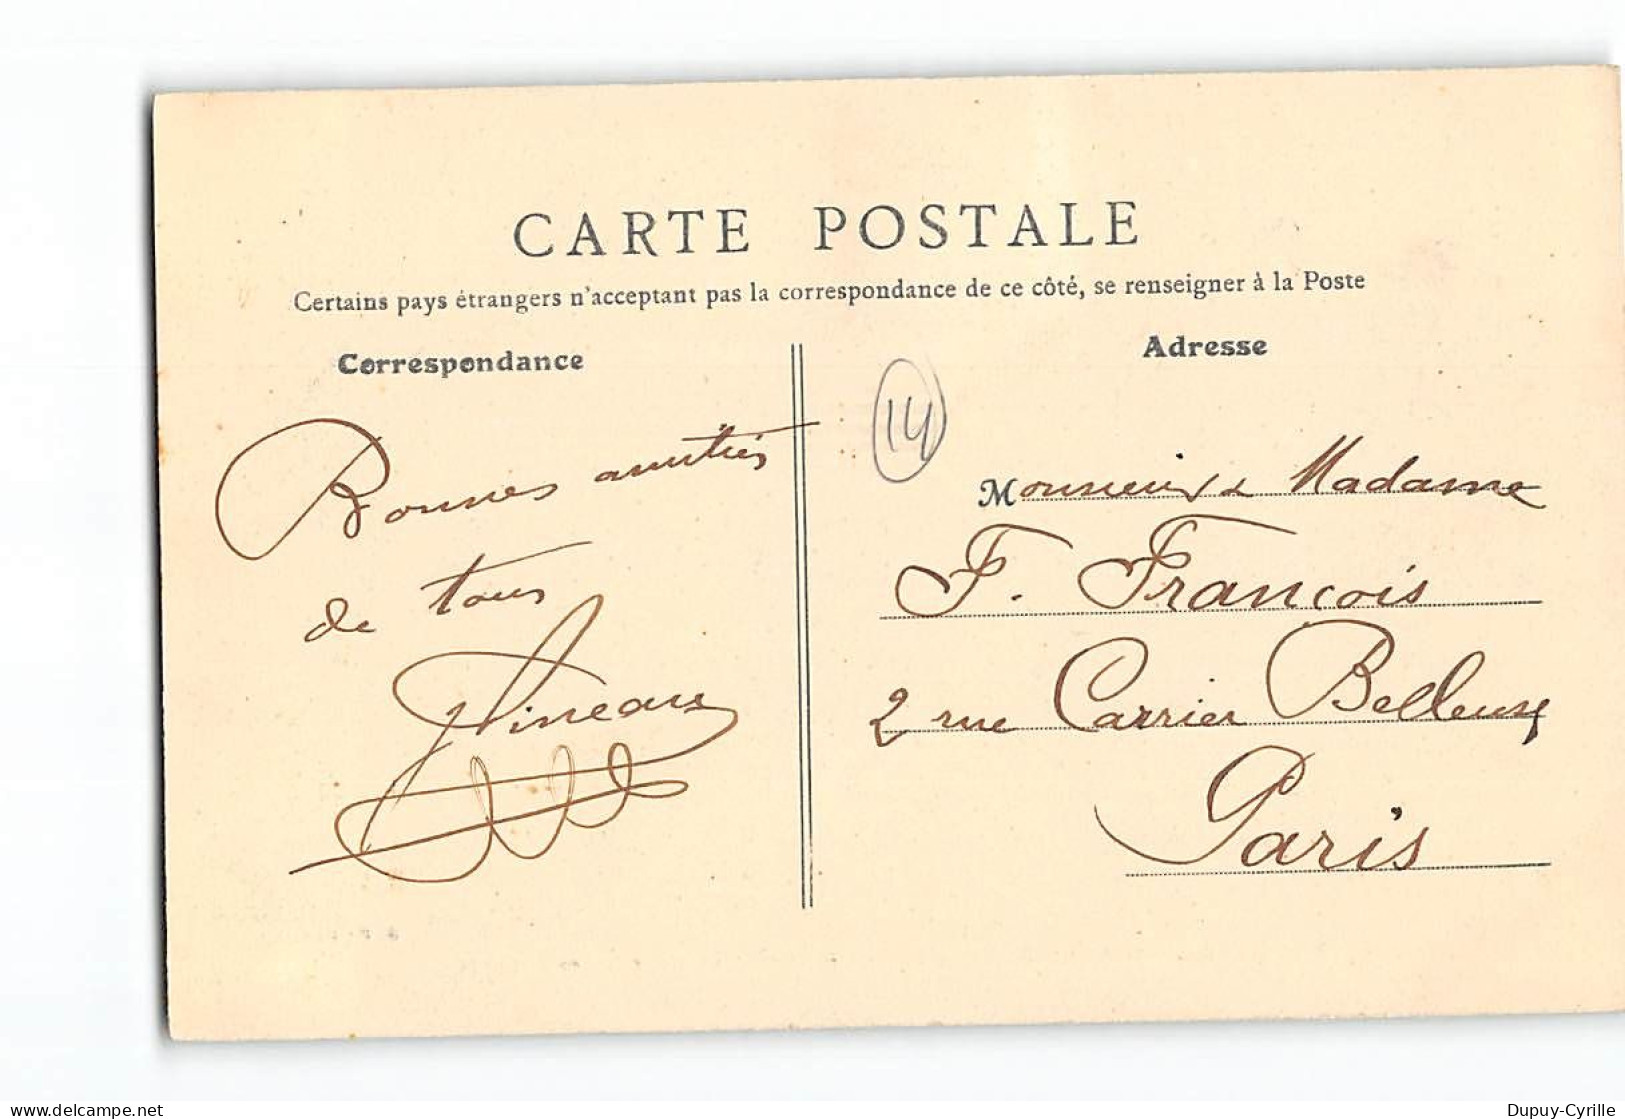 CARTE POSTALE
Certains pays étrangers n'acceptant pas la correspondance de ce côté, se renseigner à la Poste
Correspondance
Adresse
14
Bonnes amitiés
de tous
Monsieur & Madame
F. François
2 rue Carrier Belleuse
Paris
delcampe.net
Dupuy-Cyrille